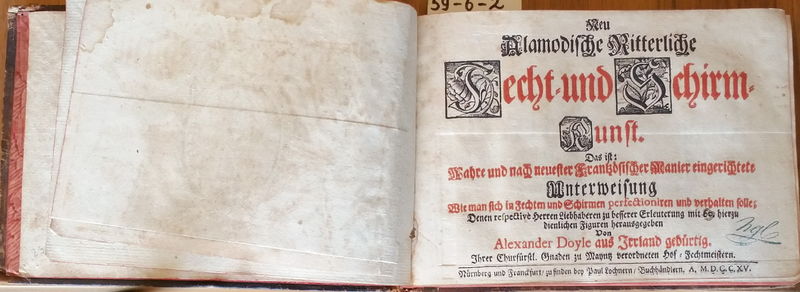 59-6-2
Neu
Alamodische Ritterliche
Fecht- und Schirm-
Kunst.
Das ist:
Wahre und nach neuester Frantzösischer Manier eingerichtete
Unterweisung
Wie man sich in Fechten und Schirmen perfectioniren und verhalten solle;
Denen respectivè Herren Liebhaberen zu besserer Erleuterung mit 60. hierzu
dienlichen Figuren herausgegeben
Von
Alexander Doyle aus Irrland gebürtig.
Ihrer Churfürstl. Gnaden zu Mayntz verordneten Hof-Fechtmeistern.
Nürnberg und Franckfurt/ zu finden bey Paul Lochnern/ Buchhändlern, A. M. D. C. C. XV.